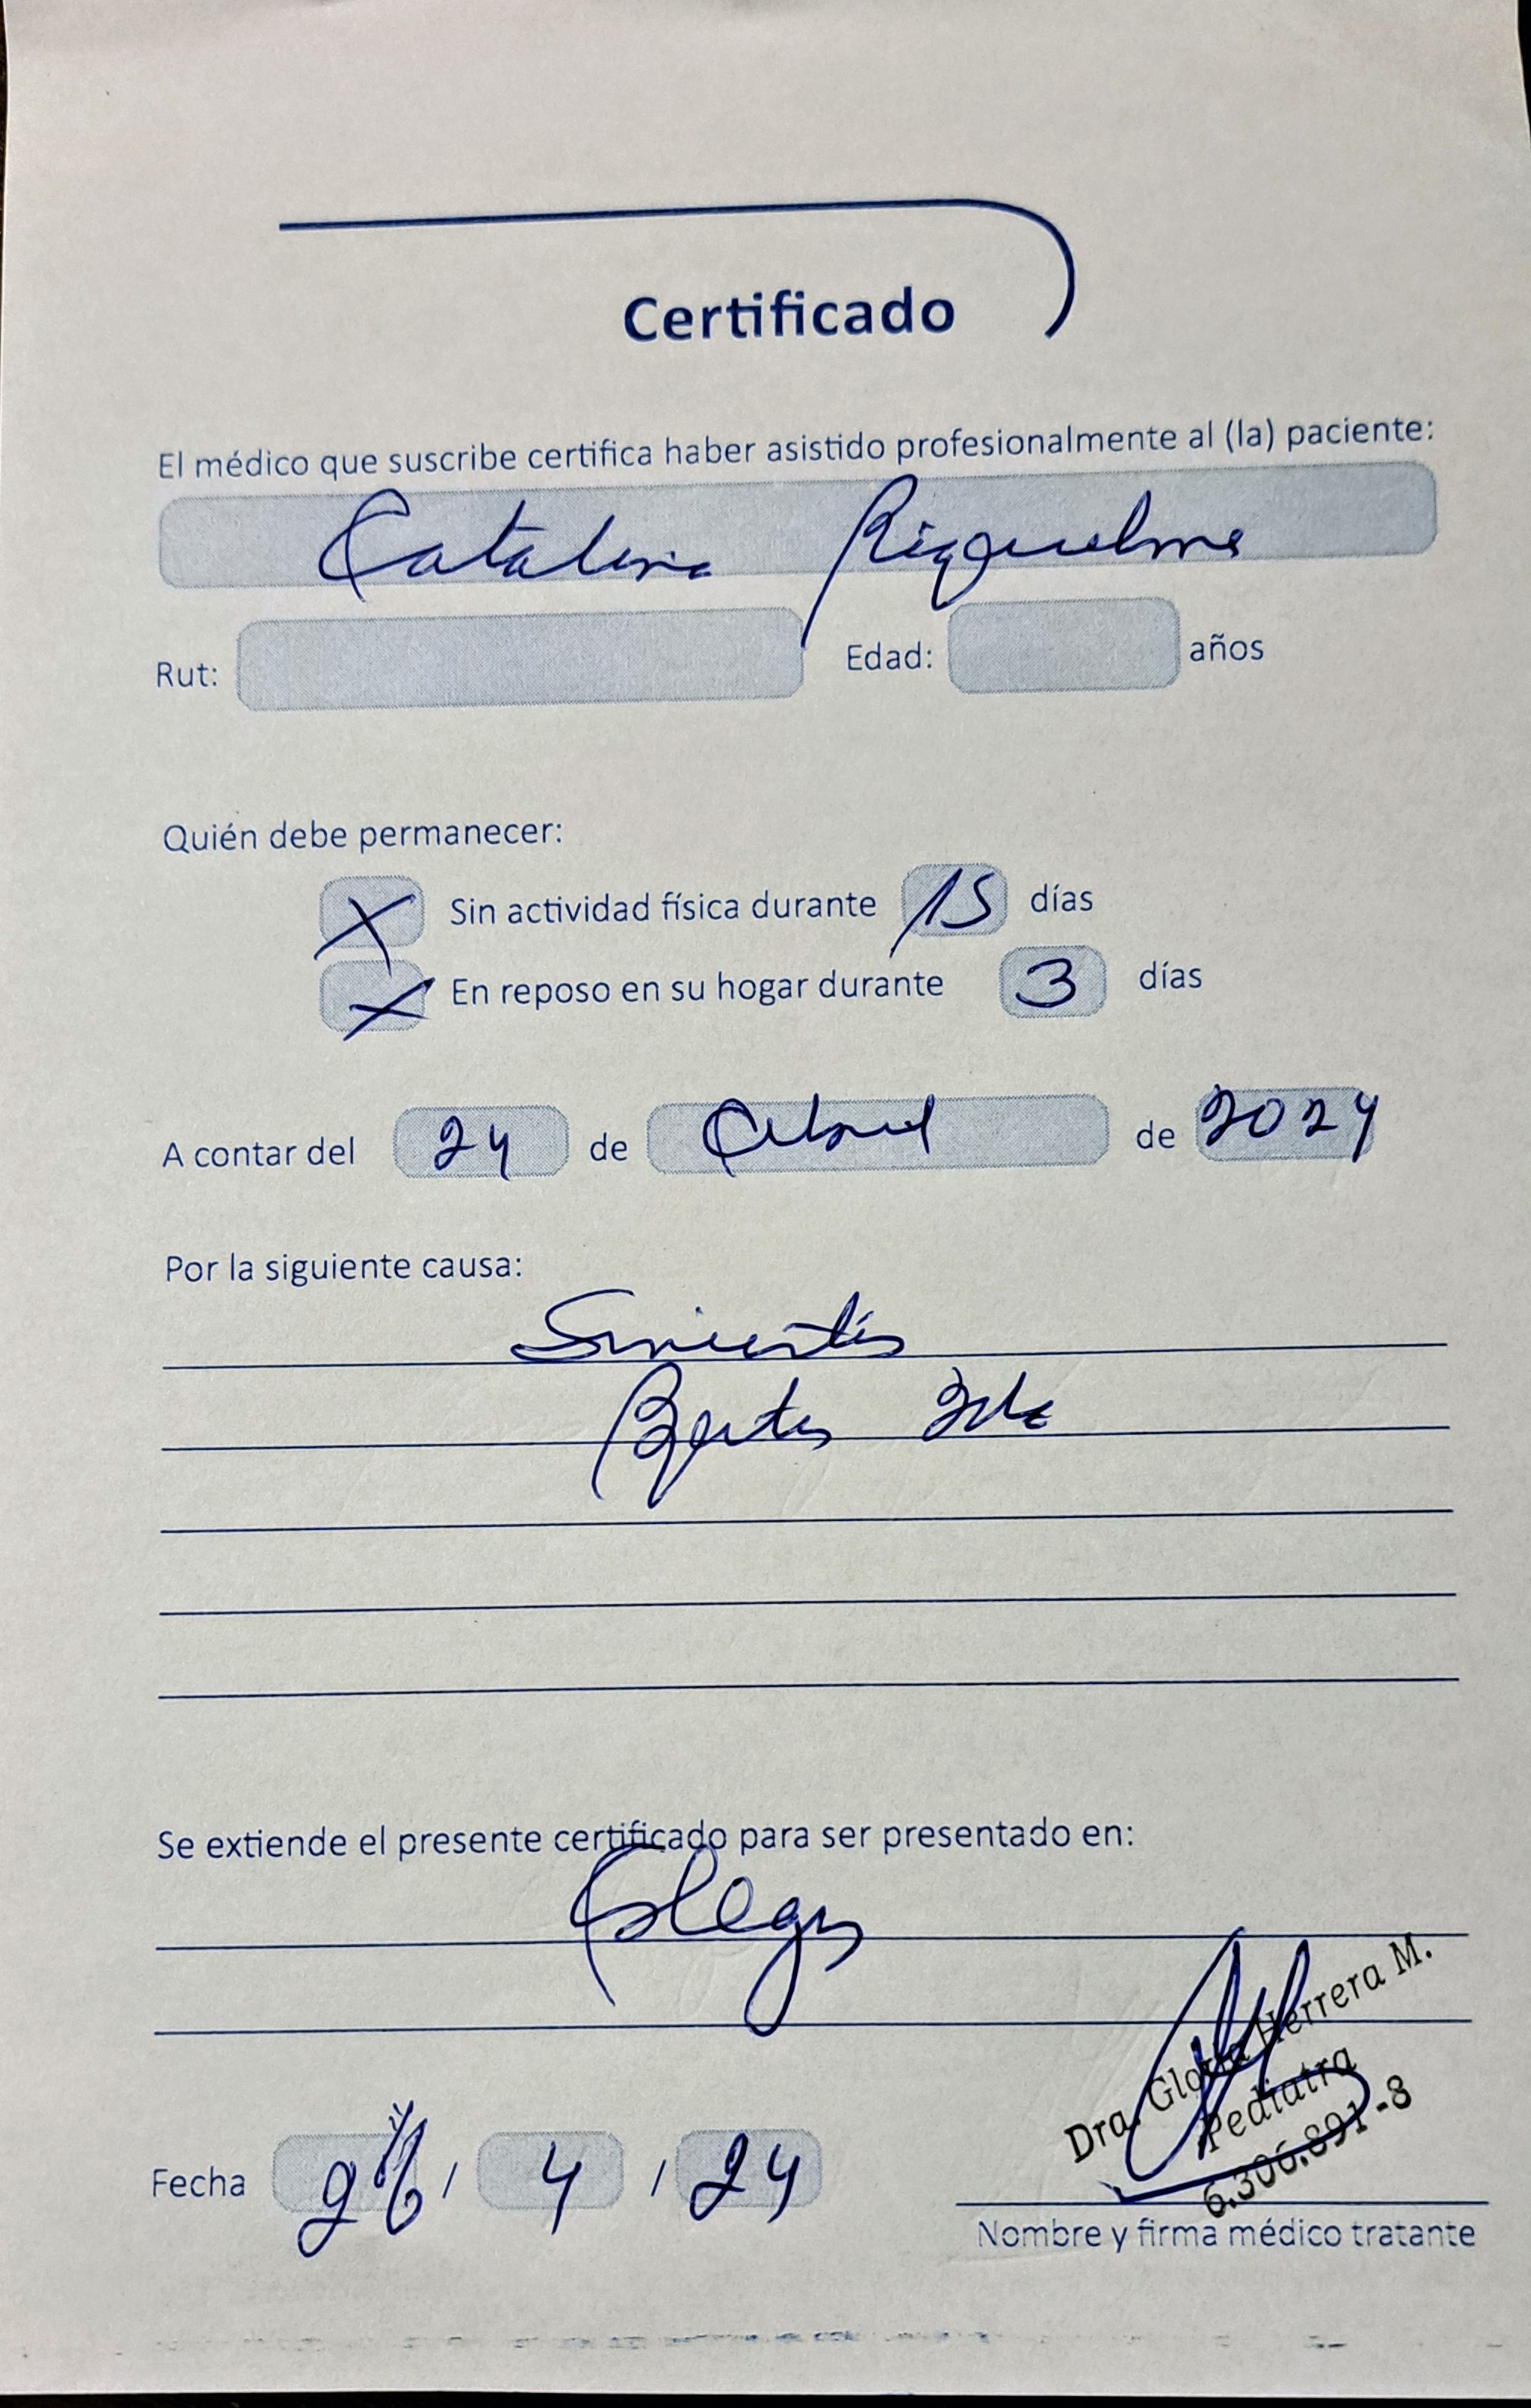 Certificado
El médico que suscribe certifica haber asistido profesionalmente al (la) paciente:
Catalina Riquelme
Rut: Edad: años
Quién debe permanecer:
X Sin actividad física durante 15 días
X En reposo en su hogar durante 3 días
A contar del 24 de Abril de 2024
Por la siguiente causa:
Se extiende el presente certificado para ser presentado en:
Colegio
Dra. Gloria Herrera M.
Pediatra
6.306.891-8
Fecha / 4 / 24
Nombre y firma médico tratante